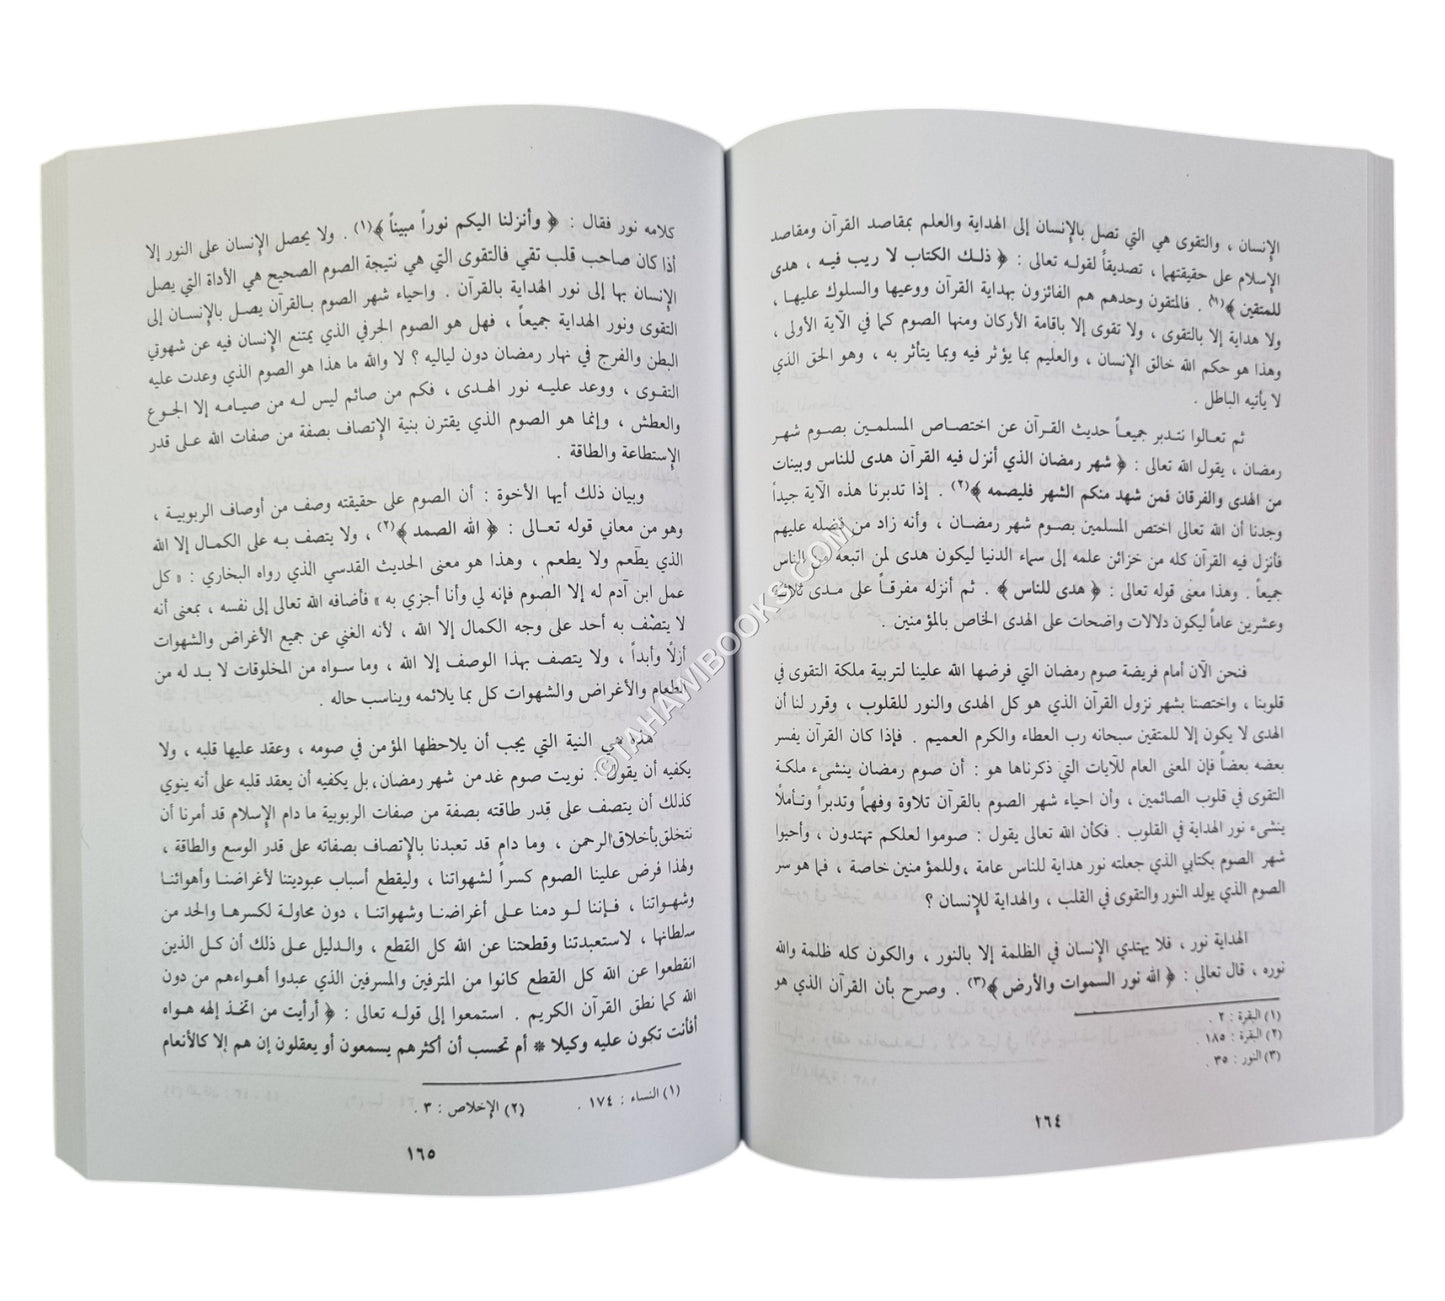 الإنسان ، والتقوى هي التي تصل بالإنسان إلى الهداية والعلم بمقاصد القرآن ومقاصد
الإسلام على حقيقتهما ، تصديقاً لقوله تعالى : ﴿ ذلك الكتاب لا ريب فيه ، هدى
للمتقين ﴾(١) . فالمتقون وحدهم هم الفائزون بهداية القرآن ووعيها والسلوك عليها ،
ولا هداية إلا بالتقوى ، ولا تقوى إلا باقامة الأركان ومنها الصوم كما في الآية الأولى ،
وهذا هو حكم الله خالق الإنسان ، والعليم بما يؤثر فيه وبما يتأثر به ، وهو الحق الذي
لا يأتيه الباطل .
ثم تعالوا نتدبر جميعاً حديث القرآن عن اختصاص المسلمين بصوم شهر
رمضان ، يقول الله تعالى : ﴿ شهر رمضان الذي أنزل فيه القرآن هدى للناس وبينات
من الهدى والفرقان فمن شهد منكم الشهر فليصمه ﴾(٢) . إذا تدبرنا هذه الآية جيداً
وجدنا أن الله تعالى اختص المسلمين بصوم شهر رمضان ، وأنه زاد من فضله عليهم
فأنزل فيه القرآن كله من خزائن علمه إلى سماء الدنيا ليكون هدى لمن اتبعه من الناس
جميعاً . وهذا معنى قوله تعالى : ﴿ هدى للناس ﴾ . ثم أنزله مفرقاً على مدى ثلاثة
وعشرين عاماً ليكون دلالات واضحات على الهدى الخاص بالمؤمنين .
فنحن الآن أمام فريضة صوم رمضان التي فرضها الله علينا لتربية ملكة التقوى في
قلوبنا ، واختصنا بشهر نزول القرآن الذي هو كل الهدى والنور للقلوب ، وقرر لنا أن
الهدى لا يكون إلا للمتقين سبحانه رب العطاء والكرم العميم . فإذا كان القرآن يفسر
بعضه بعضاً فإن المعنى العام للآيات التي ذكرناها هو : أن صوم رمضان ينشىء ملكة
التقوى في قلوب الصائمين ، وأن احياء شهر الصوم بالقرآن تلاوة وفهماً وتدبراً وتأملاً
ينشىء نور الهداية في القلوب . فكأن الله تعالى يقول : صوموا لعلكم تهتدون ، وأحيوا
شهر الصوم بكتابي الذي جعلته نور هداية للناس عامة ، وللمؤمنين خاصة ، فما هو سر
الصوم الذي يولد النور والتقوى في القلب ، والهداية للإنسان ؟
الهداية نور ، فلا يهتدي الإنسان في الظلمة إلا بالنور ، والكون كله ظلمة والله
نوره ، قال تعالى : ﴿ الله نور السموات والأرض ﴾(٣) . وصرح بأن القرآن الذي هو
(١) البقرة : ٢ .
(٢) البقرة : ١٨٥ .
(٣) النور : ٣٥ .
١٦٤
كلامه نور فقال : ﴿ وأنزلنا اليكم نوراً مبيناً ﴾(١) . ولا يحصل الإنسان على النور إلا
أذا كان صاحب قلب تقي فالتقوى التي هي نتيجة الصوم الصحيح هي الأداة التي يصل
الإنسان بها إلى نور الهداية بالقرآن . واحياء شهر الصوم بالقرآن يصل بالإنسان إلى
التقوى ونور الهداية جميعاً ، فهل هو الصوم الحرفي الذي يمتنع الإنسان فيه عن شهوتي
البطن والفرج في نهار رمضان دون لياليه ؟ لا والله ما هذا هو الصوم الذي وعدت عليه
التقوى ، ووعد عليه نور الهدى ، فكم من صائم ليس له من صيامه إلا الجوع
والعطش ، وإنما هو الصوم الذي يقترن بنية الإتصاف بصفة من صفات الله على قدر
الإستطاعة والطاقة .
وبيان ذلك أيها الأخوة : أن الصوم على حقيقته وصف من أوصاف الربوبية ،
وهو من معاني قوله تعالى : ﴿ الله الصمد ﴾(٢) ، ولا يتصف به على الكمال إلا الله
الذي يطّعم ولا يطعم ، وهذا هو معنى الحديث القدسي الذي رواه البخاري : « كل
عمل ابن آدم له إلا الصوم فإنه لي وأنا أجزي به » فأضافه الله تعالى إلى نفسه ، بمعنى أنه
لا يتصف به أحد على وجه الكمال إلا الله ، لأنه الغني عن جميع الأغراض والشهوات
أزلًا وأبداً ، ولا يتصف بهذا الوصف إلا الله ، وما سواه من المخلوقات لا بد له من
الطعام والأغراض والشهوات كل بما يلائمه ويناسب حاله .
هذه هي النية التي يجب أن يلاحظها المؤمن في صومه ، وعقد عليها قلبه ، ولا
يكفيه أن يقول : نويت صوم غد من شهر رمضان، بل يكفيه أن يعقد قلبه على أنه ينوي
كذلك أن يتصف على قدر طاقته بصفة من صفات الربوبية ما دام الإسلام قد أمرنا أن
نتخلق بأخلاق الرحمن ، وما دام قد تعبدنا بالإتصاف بصفاته على قدر الوسع والطاقة ،
ولهذا فرض علينا الصوم كسراً لشهواتنا ، وليقطع أسباب عبوديتنا لأغراضنا وأهوائنا
وشهواتنا ، فإننا لو دمنا على أغراضنا وشهواتنا ، دون محاولة لكسرها والحد من
سلطانها ، لاستعبدتنا وقطعتنا عن الله كل القطع ، والدليل على ذلك أن كل الذين
انقطعوا عن الله كل القطع كانوا من المترفين والمسرفين الذي عبدوا أهواءهم من دون
الله كما نطق القرآن الكريم . استمعوا إلى قوله تعالى : ﴿ أرأيت من اتخذ إلهه هواه
أفأنت تكون عليه وكيلا * أم تحسب أن أكثرهم يسمعون أو يعقلون إن هم إلا كالأنعام
(١) النساء : ١٧٤ .
(٢) الإخلاص : ٣ .
١٦٥
©TAHAWIBOOKS.COM